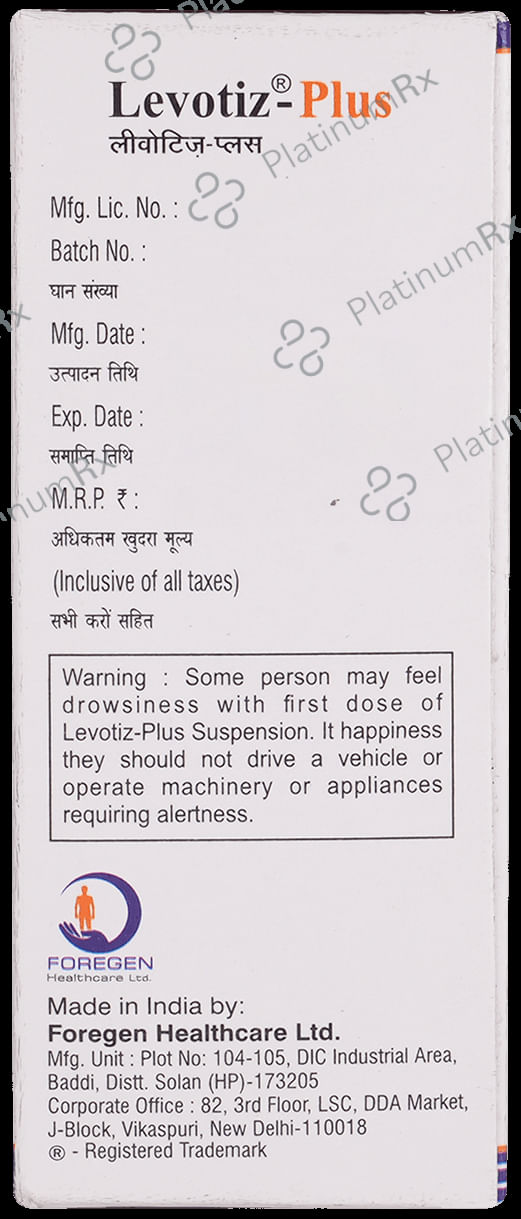 Levotiz®-Plus
लीवोटिज़-प्लस
Mfg. Lic. No. :
Batch No. :
घान संख्या
Mfg. Date :
उत्पादन तिथि
Exp. Date :
समाप्ति तिथि
M.R.P. ₹ :
अधिकतम खुदरा मूल्य
(Inclusive of all taxes)
सभी करों सहित
Warning : Some person may feel
drowsiness with first dose of
Levotiz-Plus Suspension. It happiness
they should not drive a vehicle or
operate machinery or appliances
requiring alertness.
FOREGEN
Healthcare Ltd.
Made in India by:
Foregen Healthcare Ltd.
Mfg. Unit : Plot No: 104-105, DIC Industrial Area,
Baddi, Distt. Solan (HP)-173205
Corporate Office : 82, 3rd Floor, LSC, DDA Market,
J-Block, Vikaspuri, New Delhi-110018
® - Registered Trademark
PlatinumRx
PlatinumRx
Platin
Platin
inumRx
Rx